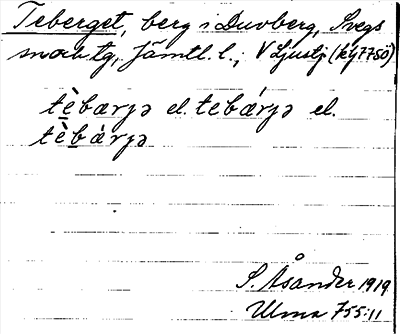 Teberget, berg i Duvberg, Svegs
snorb tg, Jämtl. l.; V Ljustj (kj 77 SÖ)
tèbærjə el. tebǽrjə el.
tèbǽrjə
S. Åsander 1919
Ulma 755:11